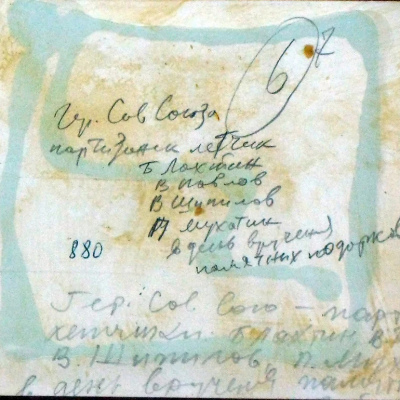 67
Гер. Сов Союза
партизанск летчик
Б Лахтин
В Павлов
В Шипилов
П Мухатик
в день вручения
памятных подарков
880
Гер. Сов Сою - парт
Б Лахтин В
В. Шипилов П. Мух
в день вручения памятн